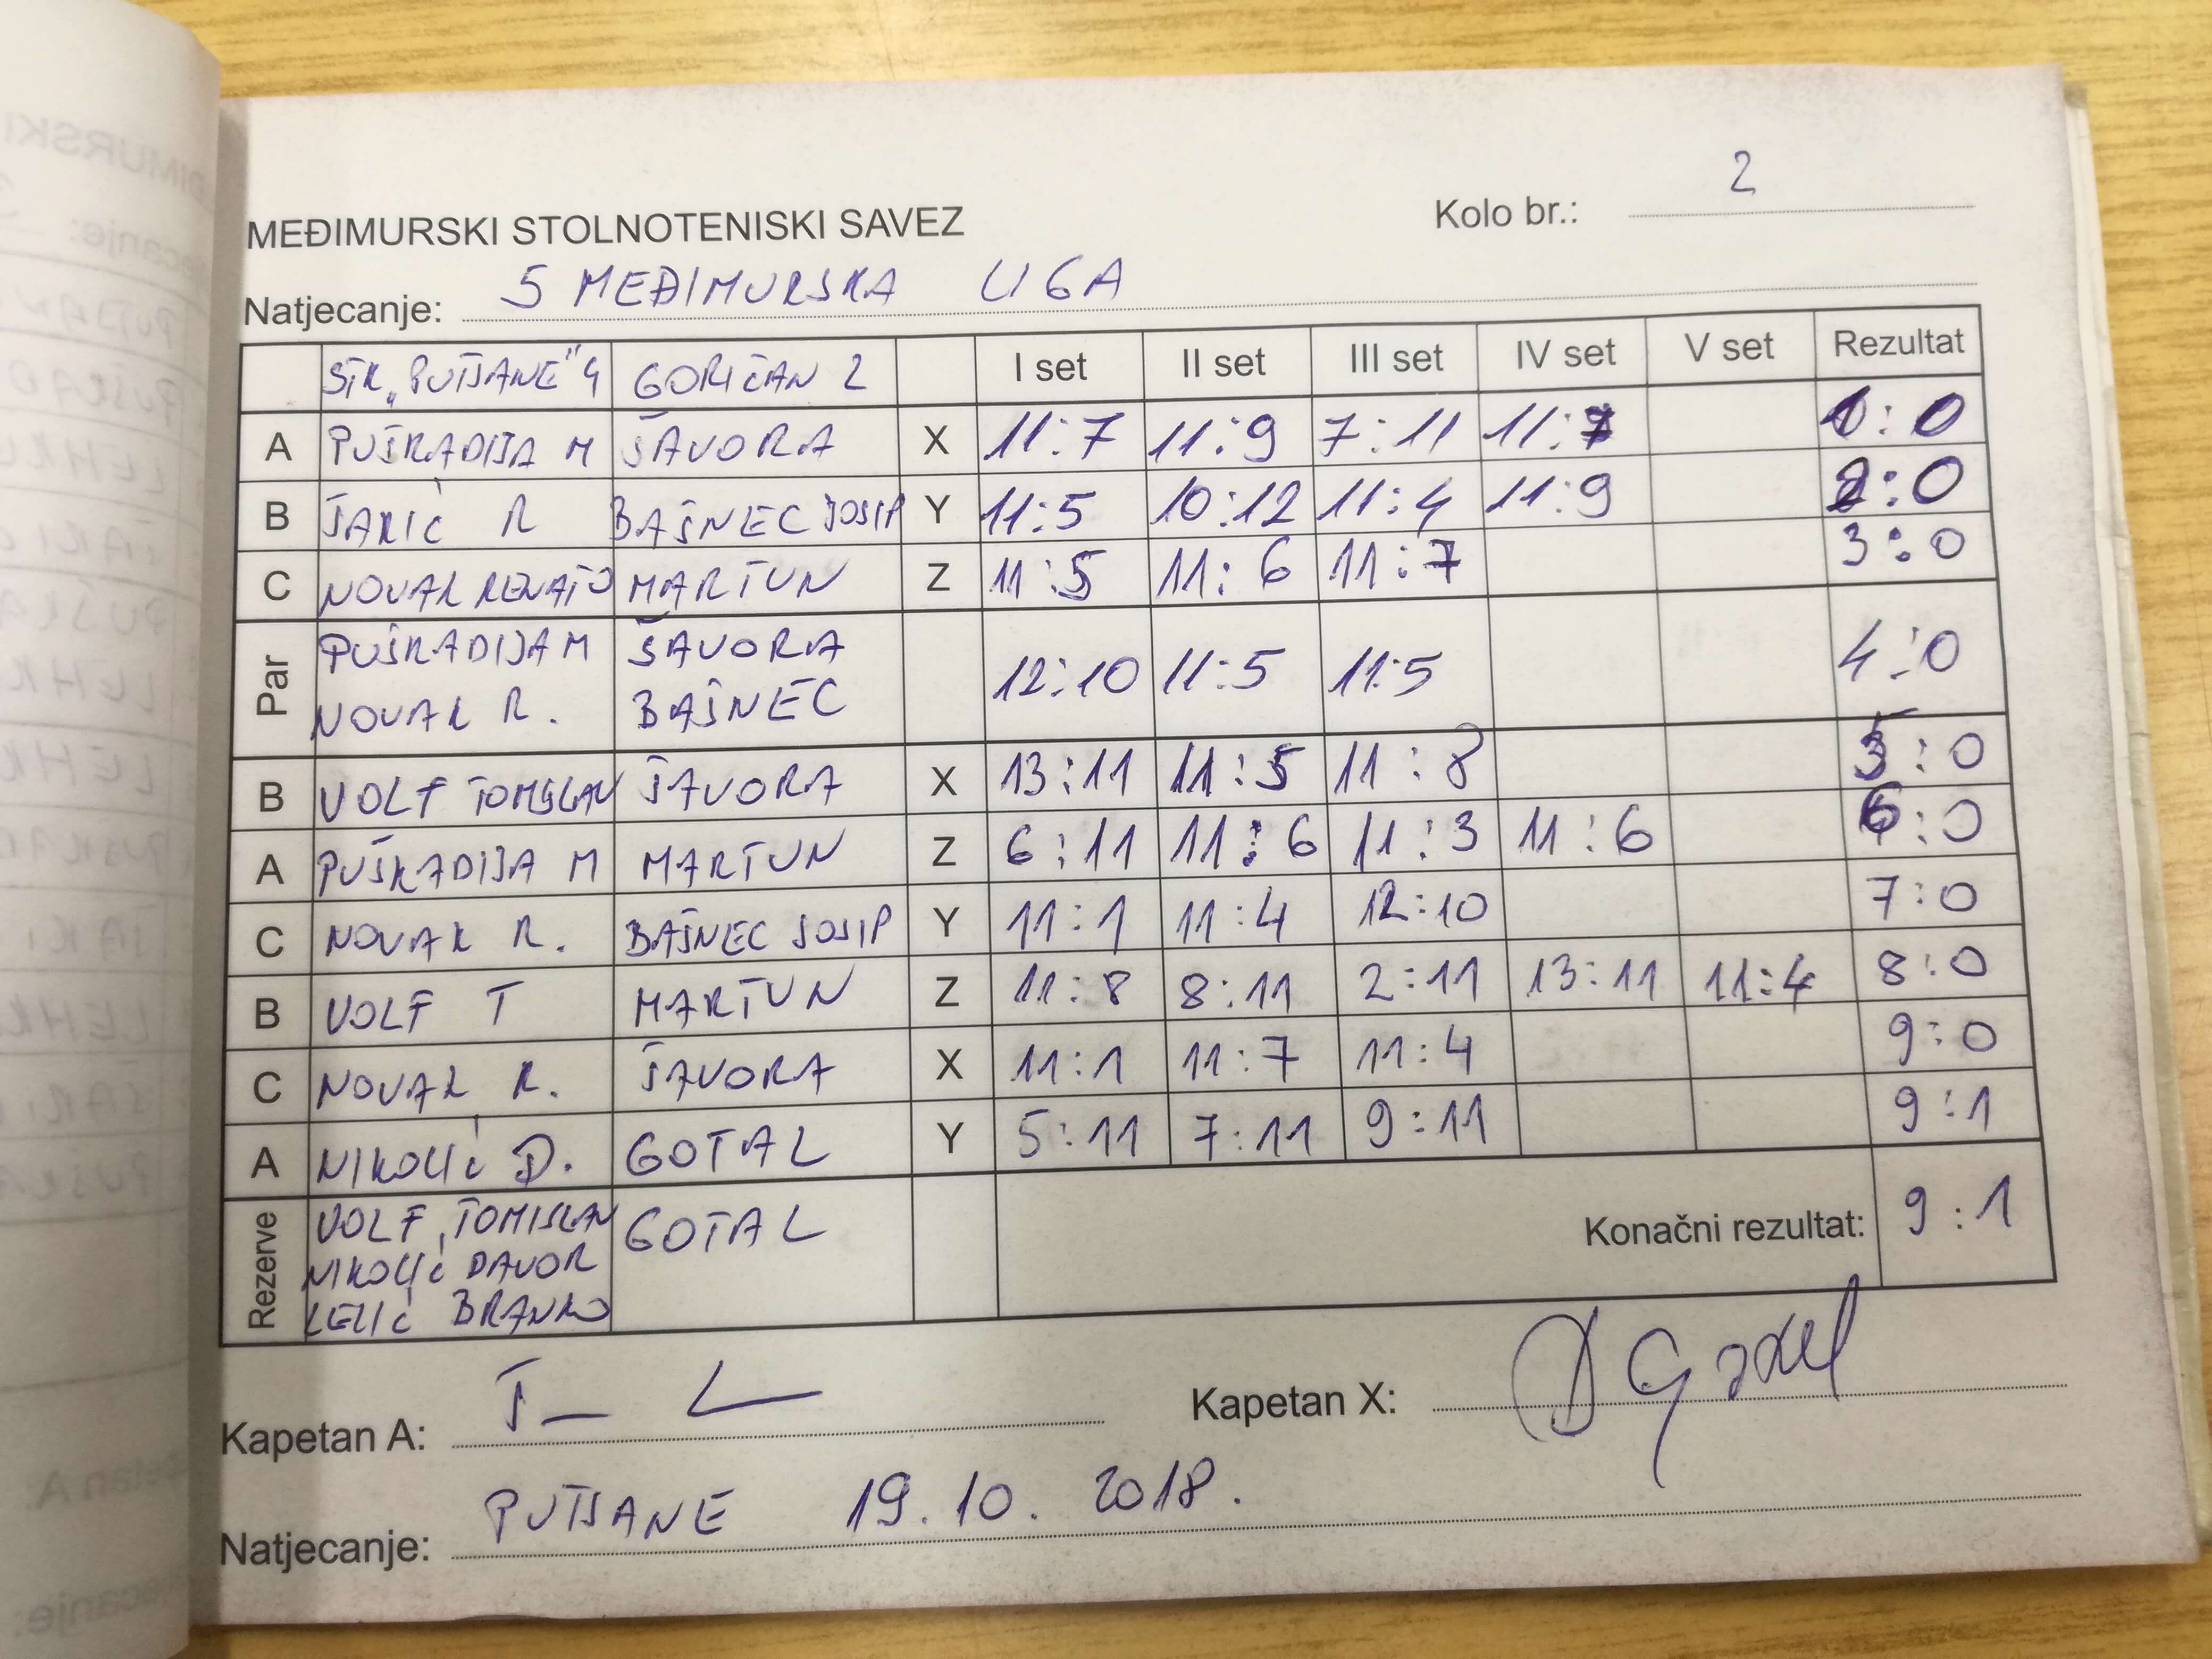 MEĐIMURSKI STOLNOTENISKI SAVEZ
Kolo br.: 2
Natjecanje: 5 MEĐIMURSKA LIGA
STK „PUTJANE" 4 GORIČAN 2 I set II set III set IV set V set Rezultat
A PUŠKADIJA M ŠAVORA X 11:7 11:9 7:11 11:7 1:0
B ŠARIĆ R BAŠNEC JOSIP Y 11:5 10:12 11:4 11:9 2:0
C NOVAK RENATO MARTUN Z 11:5 11:6 11:7 3:0
Par PUŠKADIJA M ŠAVORA
NOVAK R. BAŠNEC 12:10 11:5 11:5 4:0
B VOLF TOMISLAV ŠAVORA X 13:11 11:5 11:8 5:0
A PUŠKADIJA M MARTUN Z 6:11 11:6 11:3 11:6 6:0
C NOVAK R. BAŠNEC JOSIP Y 11:1 11:4 12:10 7:0
B VOLF T MARTUN Z 11:8 8:11 2:11 13:11 11:4 8:0
C NOVAK R. ŠAVORA X 11:1 11:7 11:4 9:0
A NIKOLIĆ D. GOTAL Y 5:11 7:11 9:11 9:1
Rezerve VOLF, TOMISLAV GOTAL Konačni rezultat: 9:1
NIKOLIĆ DAVOR
LELIĆ BRANKO
Kapetan A: Kapetan X:
Natjecanje: PUTJANE 19.10.2018.